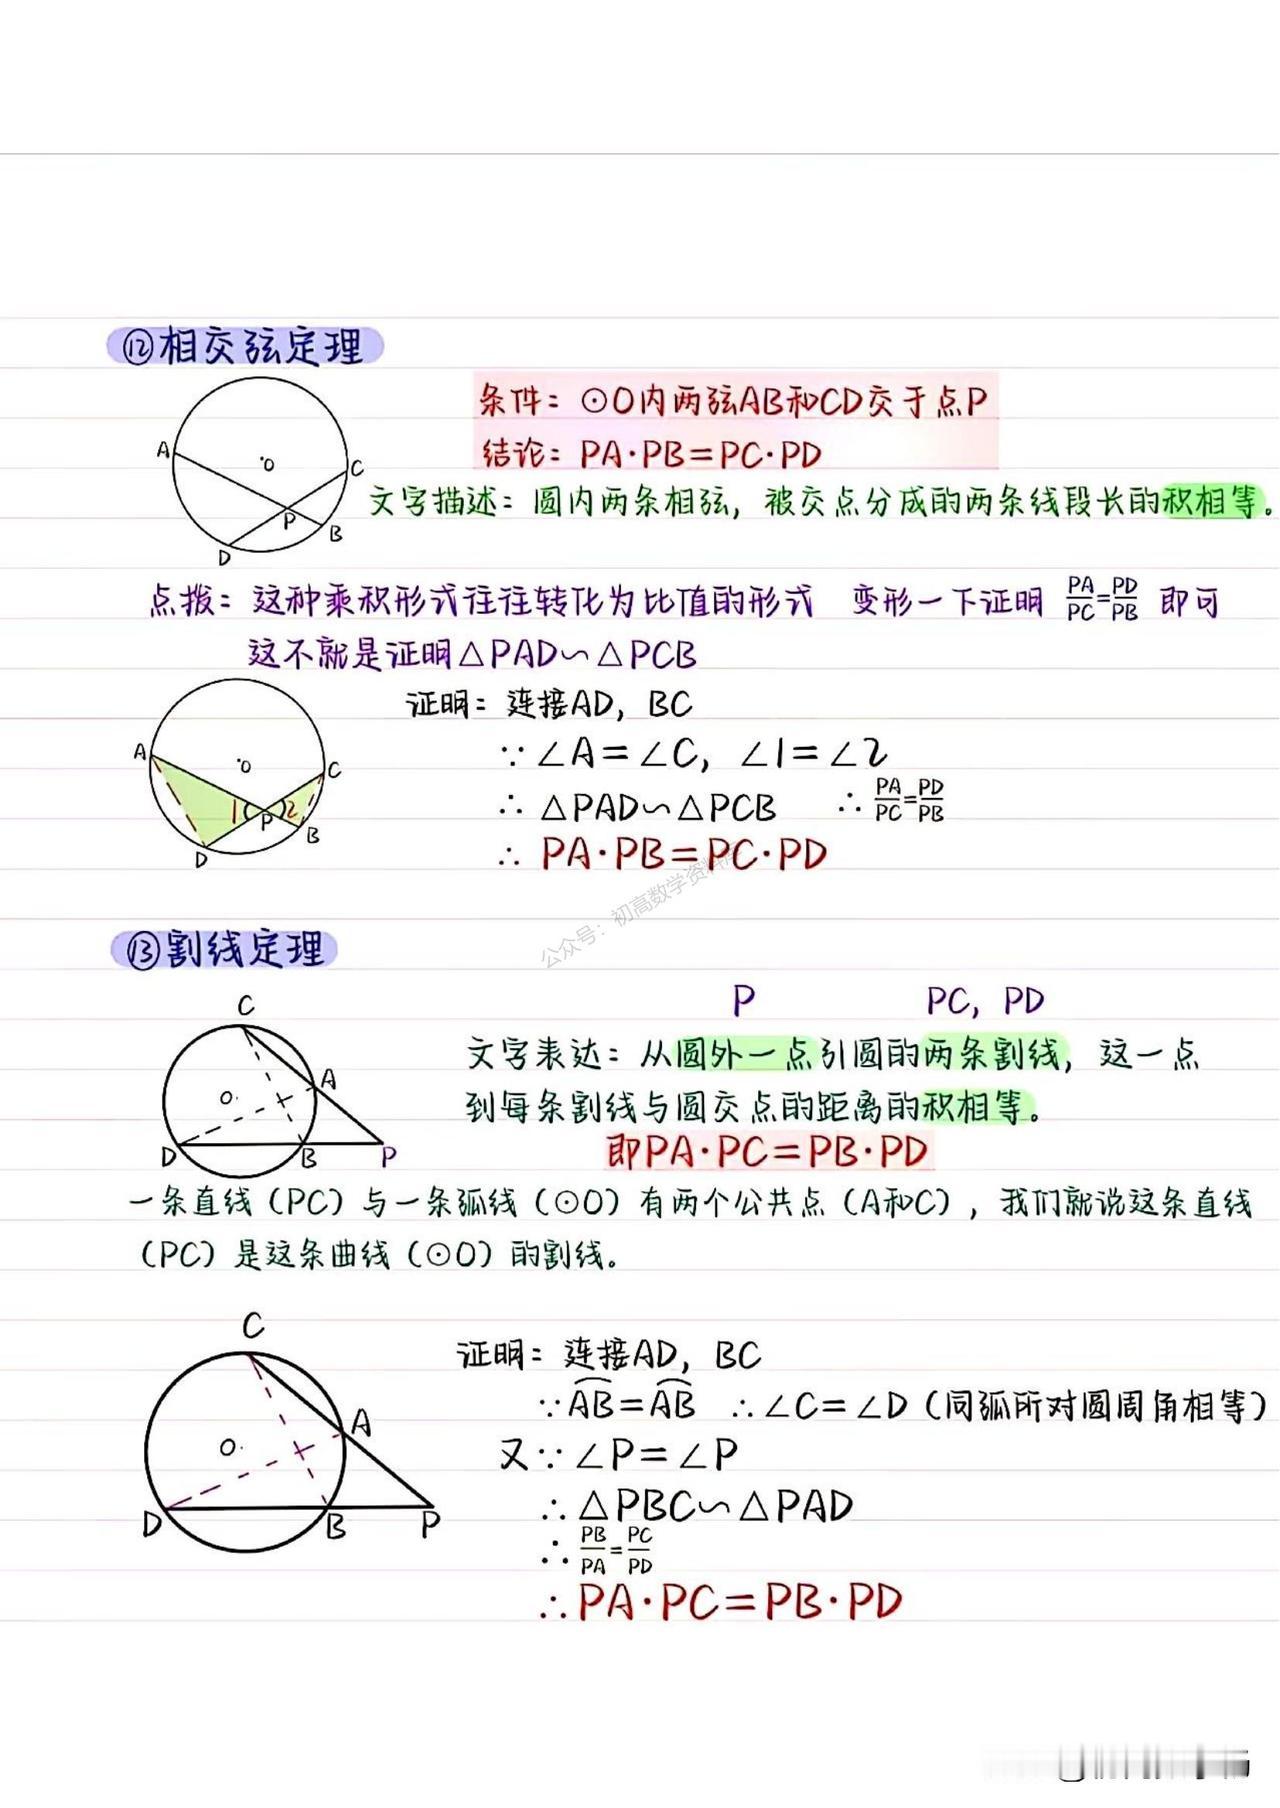 ⑫相交弦定理
A
O
C
P
B
D
条件：⊙O内两弦AB和CD交于点P
结论：PA·PB=PC·PD
文字描述：圆内两条相弦，被交点分成的两条线段长的积相等。
点拨：这种乘积形式往往转化为比值的形式 变形一下证明 PA/PC=PD/PB 即可
这不就是证明△PAD∽△PCB
A
O
C
1
P
2
B
D
证明：连接AD，BC
∵∠A=∠C，∠1=∠2
∴△PAD∽△PCB ∴PA/PC=PD/PB
∴ PA·PB=PC·PD
公众号：初高数学资料库
⑬割线定理
C
A
O
D
B
P
P PC，PD
文字表达：从圆外一点引圆的两条割线，这一点
到每条割线与圆交点的距离的积相等。
即PA·PC=PB·PD
一条直线（PC）与一条弧线（⊙O）有两个公共点（A和C），我们就说这条直线
（PC）是这条曲线（⊙O）的割线。
C
A
O
D
B
P
证明：连接AD，BC
∵AB=AB ∴∠C=∠D（同弧所对圆周角相等）
又∵∠P=∠P
∴△PBC∽△PAD
∴PB/PA=PC/PD
∴PA·PC=PB·PD